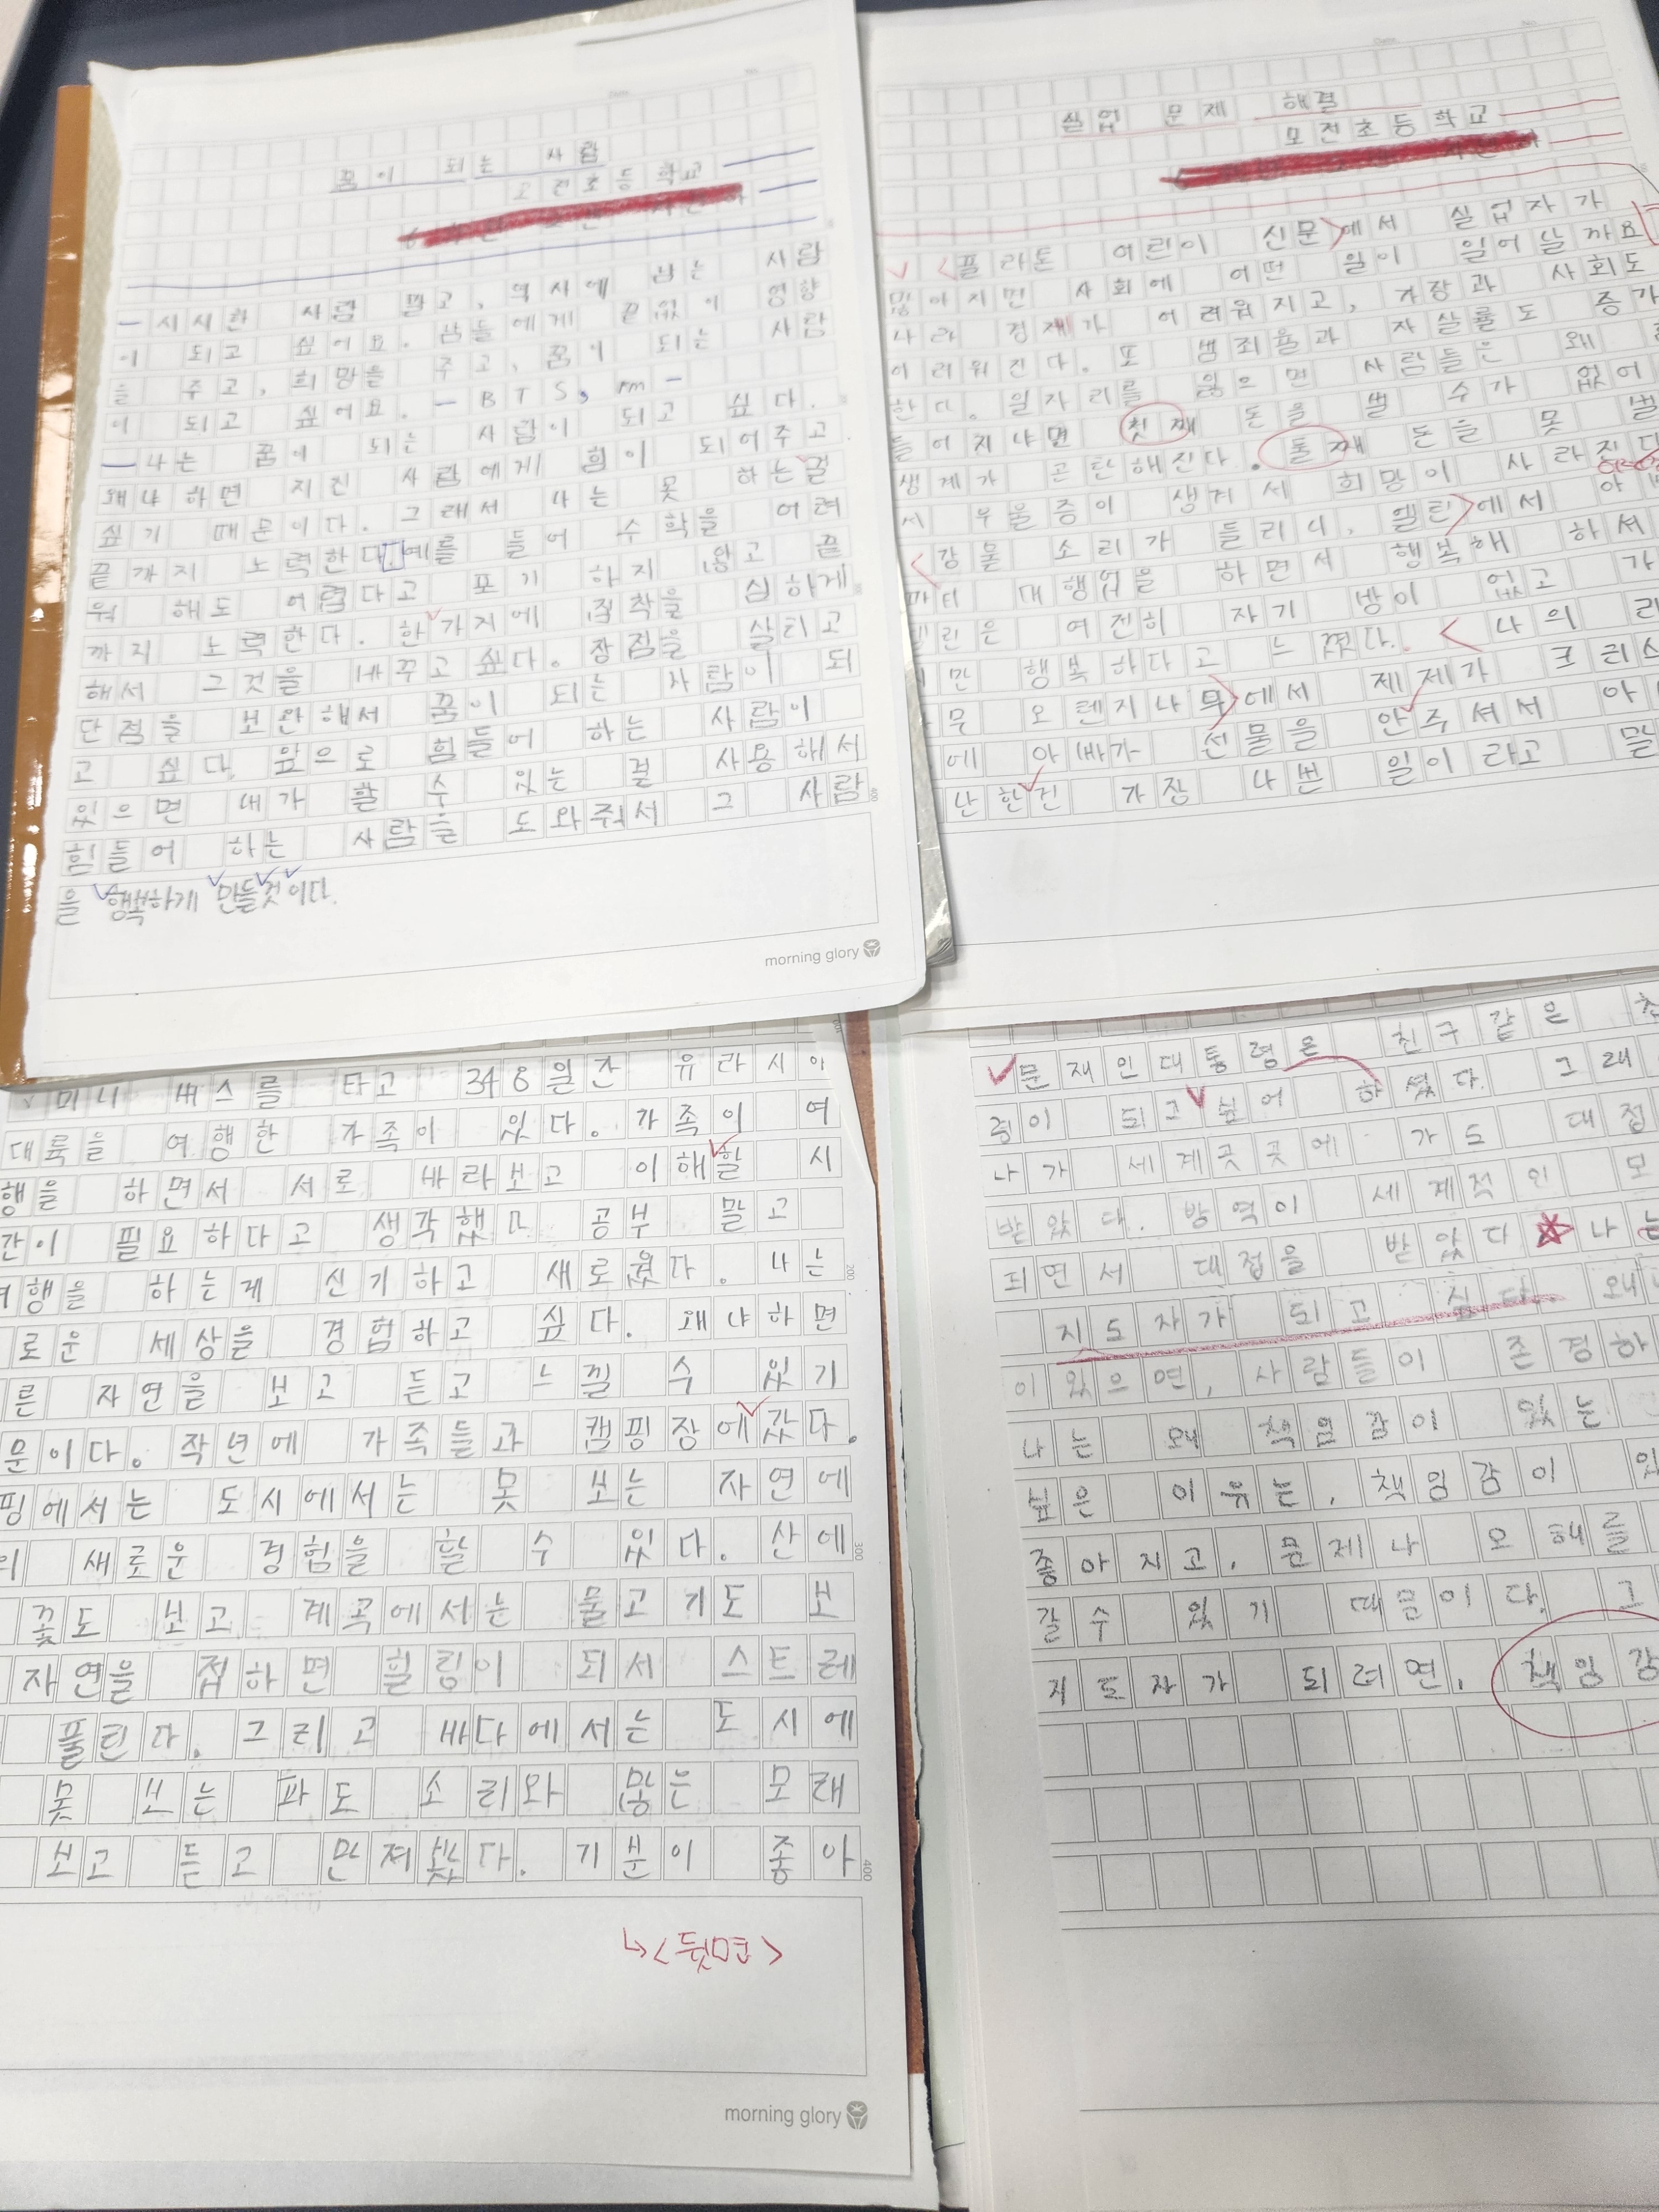 꿈이 되는 사람
고전초등학교
시시한 사람 말고, 역시에 남는 사람
이 되고 싶어요. 남들에게 끝없이 영향
을 주고, 희망을 주고, 꿈이 되는 사람
이 되고 싶어요. - BTS, rm -
나는 꿈이 되는 사람이 되고 싶다.
왜냐하면 지진 사람에게 힘이 되어주고
싶기 때문이다. 그래서 나는 못 하는걸
끝까지 노력한다 예를 들어 수학을 어려
워 해도 어렵다고 포기 하지 않고 끝
까지 노력한다. 한가지에 집착을 심하게
해서 그것을 바꾸고 싶다. 장점을 살리고
단점을 보완해서 꿈이 되는 사람이 되
고 싶다. 앞으로 힘들어 하는 사람이
있으면 내가 할 수 있는 걸 사용해서
힘들어 하는 사람을 도와줘서 그 사람
을 행복하게 만들것이다.
morning glory
실업 문제 해결
모전초등학교
<플라톤 어린이 신문>에서 실업자가
많아지면 사회에 어떤 일이 일어날까요
나라 경제가 어려워지고, 가장과 사회도
어려워진다. 또 범죄율과 자살률도 증가
한다. 일자리를 잃으면 사람들은 왜
들어지냐면 첫째 돈을 벌 수가 없어
생계가 곤란해진다. 둘째 돈을 못 벌
서 우울증이 생겨서 희망이 사라진다
<강물 소리가 들리니, 엘린>에서 아
파티 대행업을 하면서 행복해 하셔
엘린은 여전히 자기 방이 없고 가
지만 행복하다고 느꼈다. <나의 라
무 오렌지나무>에서 제제가 크리스
에 아빠가 선물을 안주셔서 아
난한건 가장 나쁜 일이라고 말
미니 버스를 타고 348일간 유라시아
대륙을 여행한 가족이 있다. 가족이 여
행을 하면서 서로 바라보고 이해할 시
간이 필요하다고 생각했다 공부 말고
여행을 하는게 신기하고 새로웠다. 나는
로운 세상을 경험하고 싶다. 왜냐하면
른 자연을 보고 듣고 느낄 수 있기
문이다. 작년에 가족들과 캠핑장에갔다.
핑에서는 도시에서는 못 보는 자연에
의 새로운 경험을 할 수 있다. 산에
꽃도 보고 계곡에서는 물고기도 보
자연을 접하면 힐링이 되서 스트레
풀린다. 그리고 바다에서는 도시에
못 보는 파도 소리와 많은 모래
보고 듣고 만져봤다. 기분이 좋아
morning glory
문재인대통령은 친구같은
령이 되고싶어 하셨다. 그래
나가 세계곳곳에 가도 대접
받았다. 방역이 세계적인 모
되면서 대접을 받았다 나는
지도자가 되고 싶다. 왜냐
이 있으면, 사람들이 존경하
나는 왜 책임감이 있는
싶은 이유는, 책임감이 있
좋아지고, 문제나 오해를
갈수 있기 때문이다. 그
지도자가 되려면, 책임감